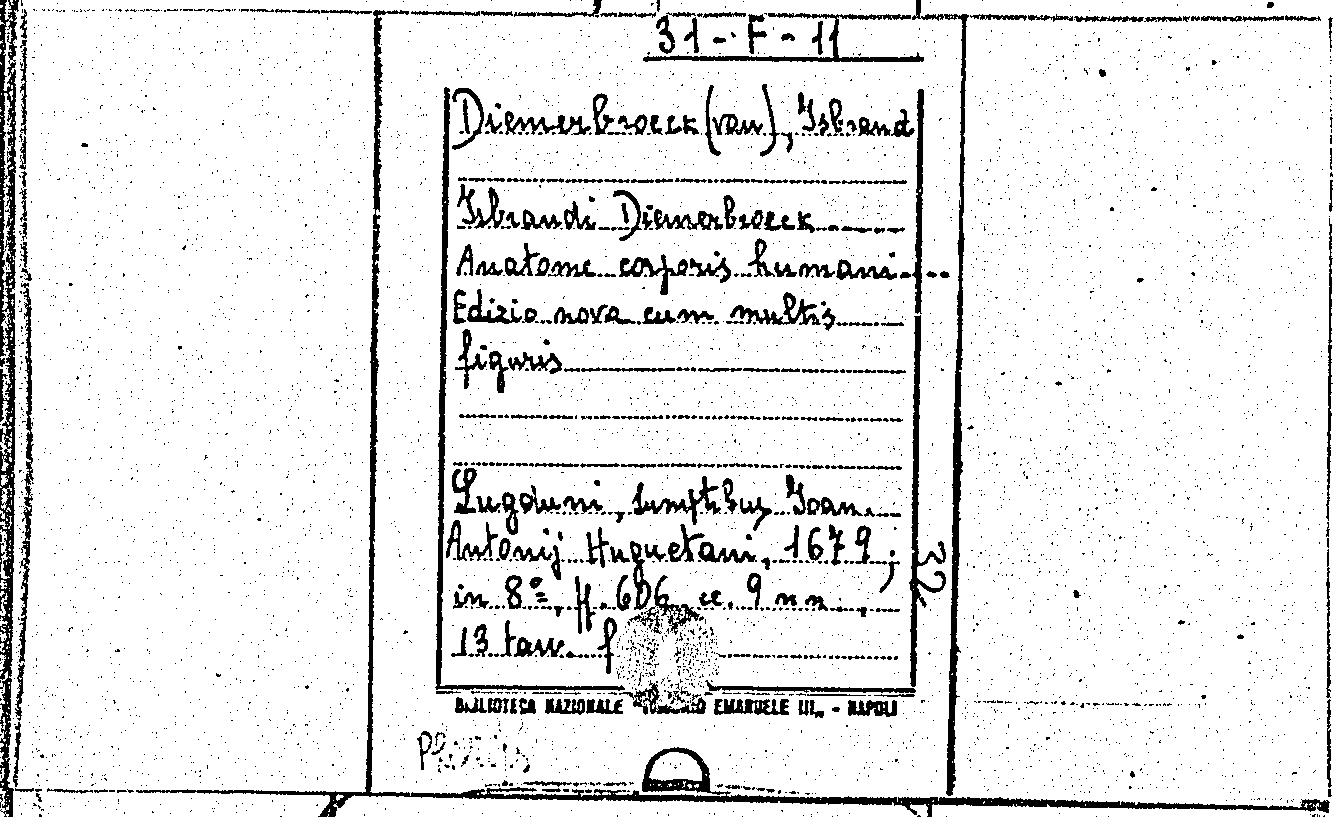 31 - F - 11
Diemerbroeck (van), Isbrand
Isbrandi Diemerbroeck
Anatome corporis humani...
Edizio nova cum multis
figuris
Lugduni, sumptibus Ioan.
Antonij Huguetani, 1679;
in 8º, pp. 606 cc. 9 nn.,
13 tavv. f
32
BIBLIOTECA NAZIONALE EMANUELE III„ - NAPOLI